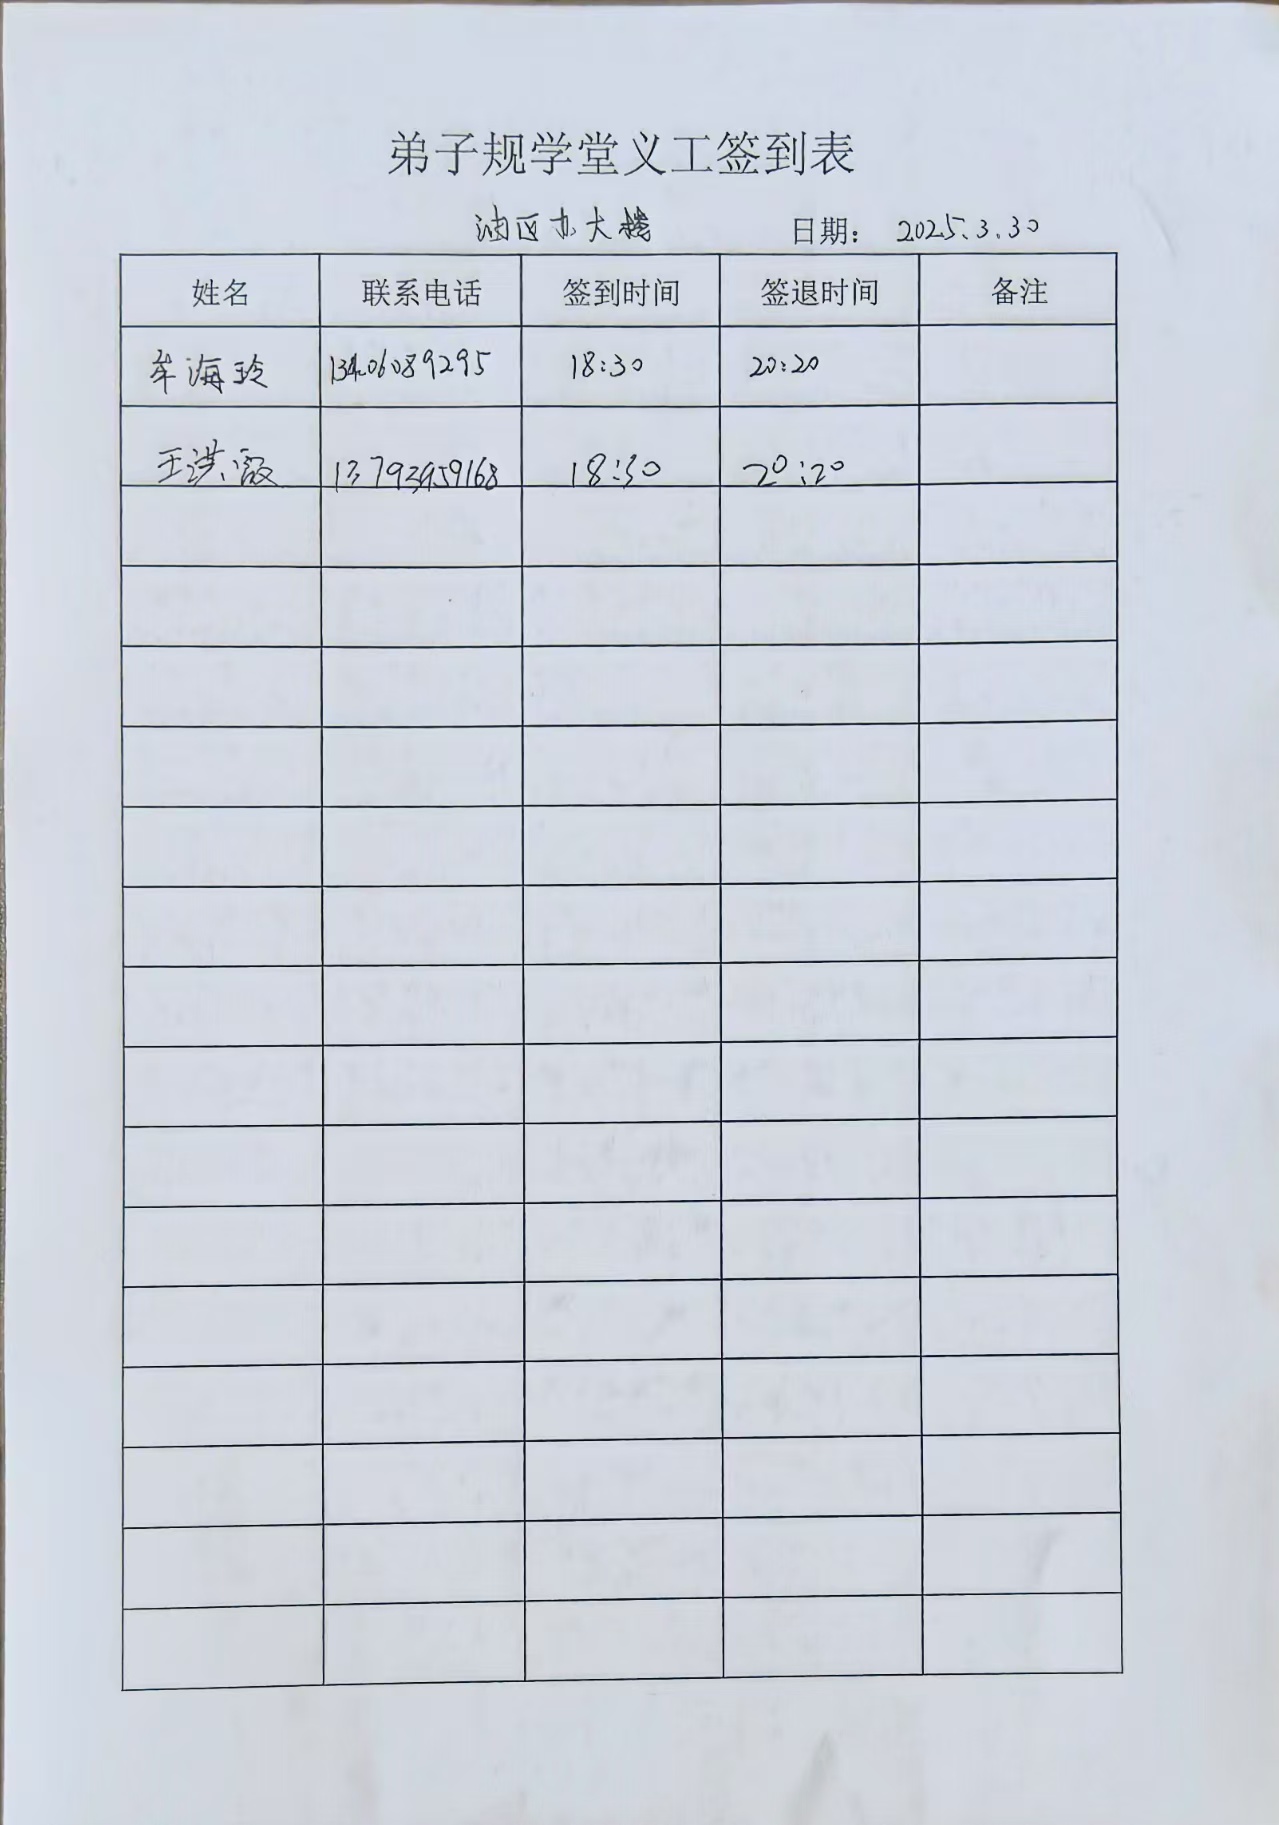 弟子规学堂义工签到表
油区办大楼 日期： 2025.3.30
姓名 联系电话 签到时间 签退时间 备注
牟海玲 13406089295 18:30 20:20
王洪霞 13793959168 18:30 20:20